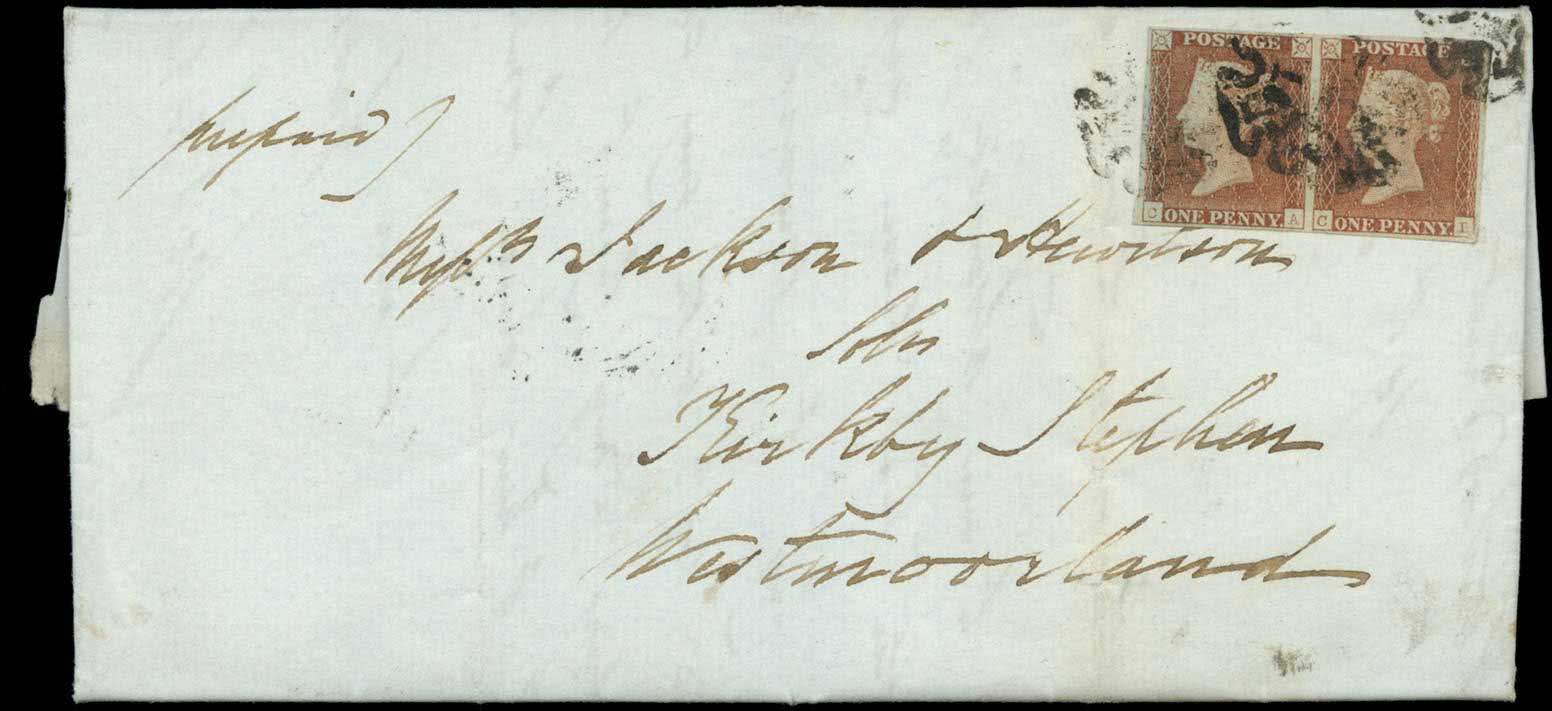 POSTAGE POSTAGE
C ONE PENNY. A C ONE PENNY. I
prepaid
Messrs Jackson & Hewitson
Solrs
Kirkby Stephen
Westmoorland